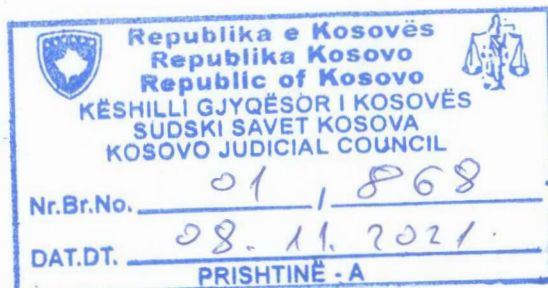 Republika e Kosovës
Republika Kosovo
Republic of Kosovo
KËSHILLI GJYQËSOR I KOSOVËS
SUDSKI SAVET KOSOVA
KOSOVO JUDICIAL COUNCIL
Nr.Br.No. 01 / 868
DAT.DT. 08. 11. 2021.
PRISHTINË - A